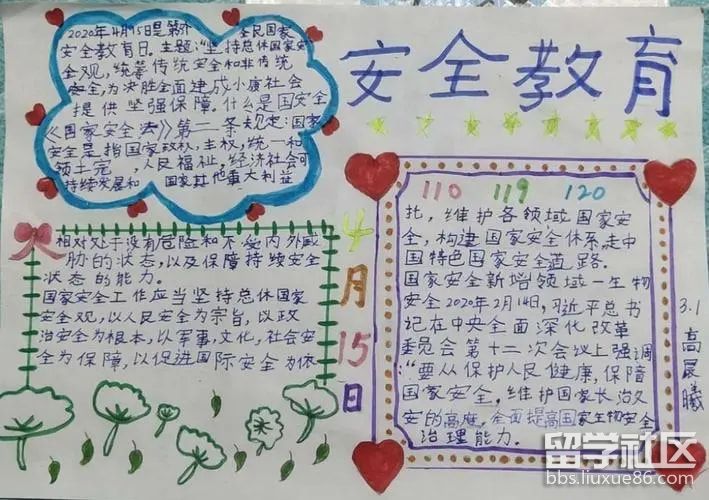 安全教育
2020年4月15日是第个全民国家
安全教育日.主题:"坚持总体国家安
全观,统筹传统安全和非传统
安全,为决胜全面建成小康社会
提供坚强保障.什么是国安全
《国家安全法》第二条规定:国家
安全是指国家政权,主权,统一和
领土完,人民福祉,经济社会可
持续发展和国家其他重大利益
相对处于没有危险和不受内外威
胁的状态,以及保障持续安全
状态的能力.
国家安全工作应当坚持总体国家
安全观,以人民安全为宗旨,以政
治安全为根本,以军事,文化,社会安
全为保障,以促进国际安全为依
4月15日
110 119 120
扎,维护各领域国家安
全,构建国家安全体系,走中
国特色国家安全道路.
国家安全新增领域一生物
安全2020年2月14日,习近平总书
记在中央全面深化改革
委员会第十二次会议上强调
:"要从保护人民健康,保障
国家安全,维护国家长治久
安的高度,全面提高国家生物安全
治理能力.
3.1高晨曦
留学社区
bbs.liuxue86.com